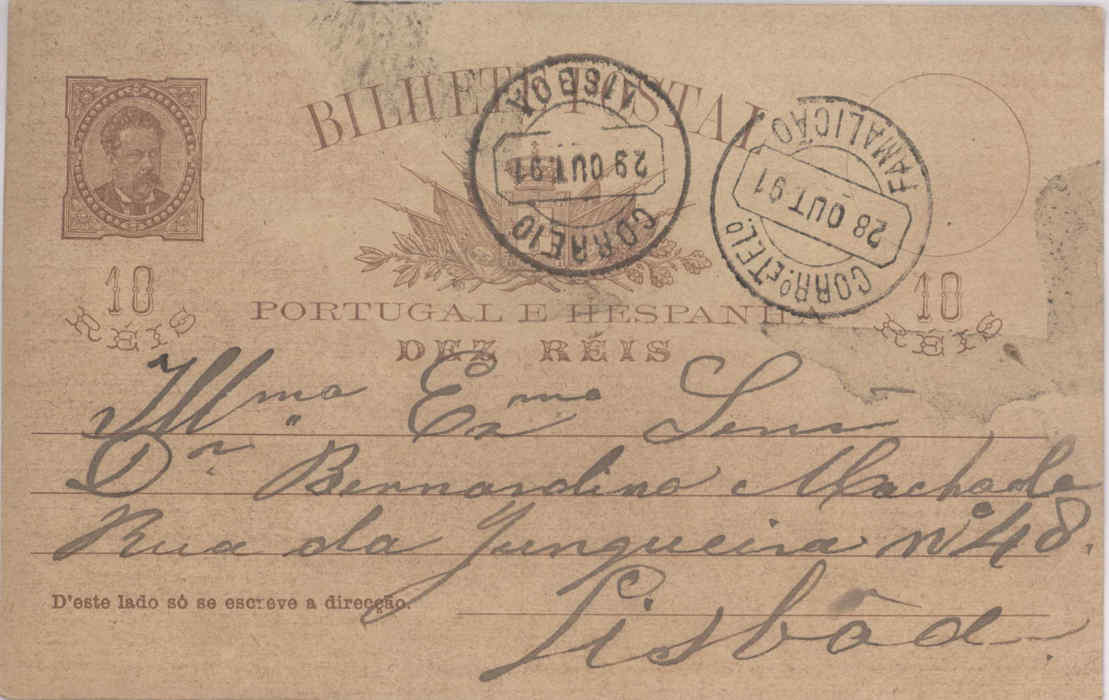 BILHETE POSTAL
LISBOA
29 OUT. 91
CORREIO
FAMALICÃO
28 OUT 91
CORRº. E TELº.
10
RÉIS
10
RÉIS
PORTUGAL E HESPANHA
DEZ RÉIS
Illmo Exmo Senr
Dr. Bernardino Machado
Rua da Junqueira nº 48.
D'este lado só se escreve a direcção.
Lisbôa.